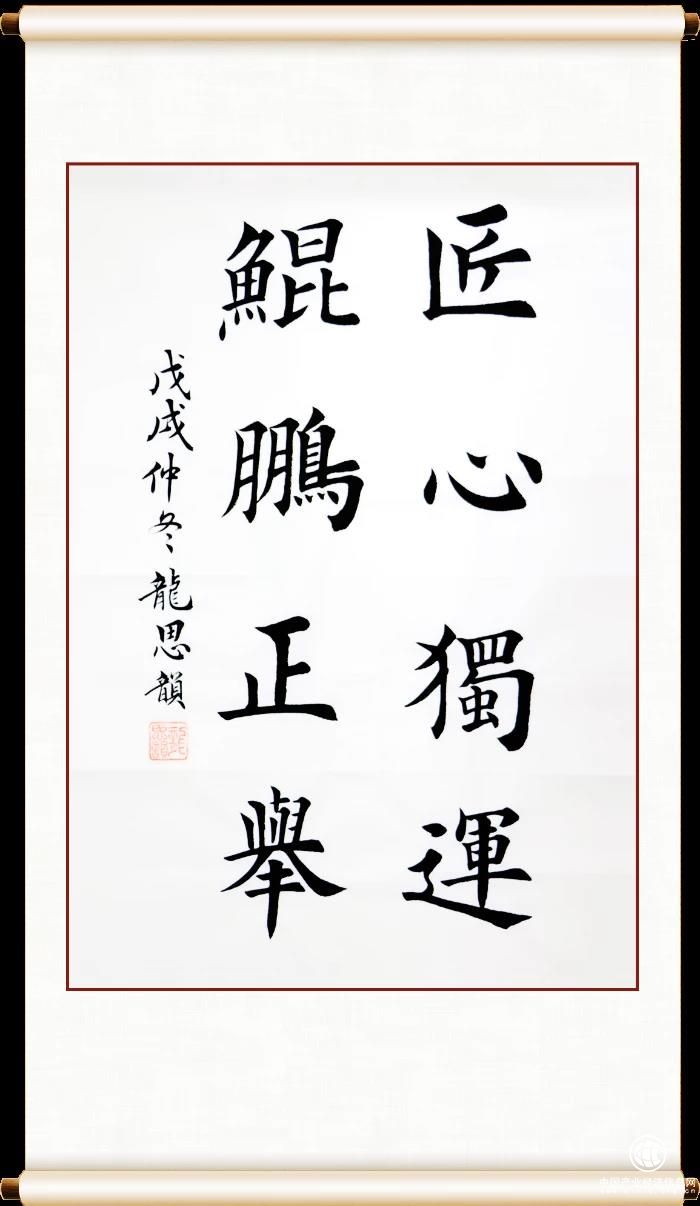 匠心獨運
鯤鵬正舉
戊戌仲冬龍思韻
中国产业经济信息网